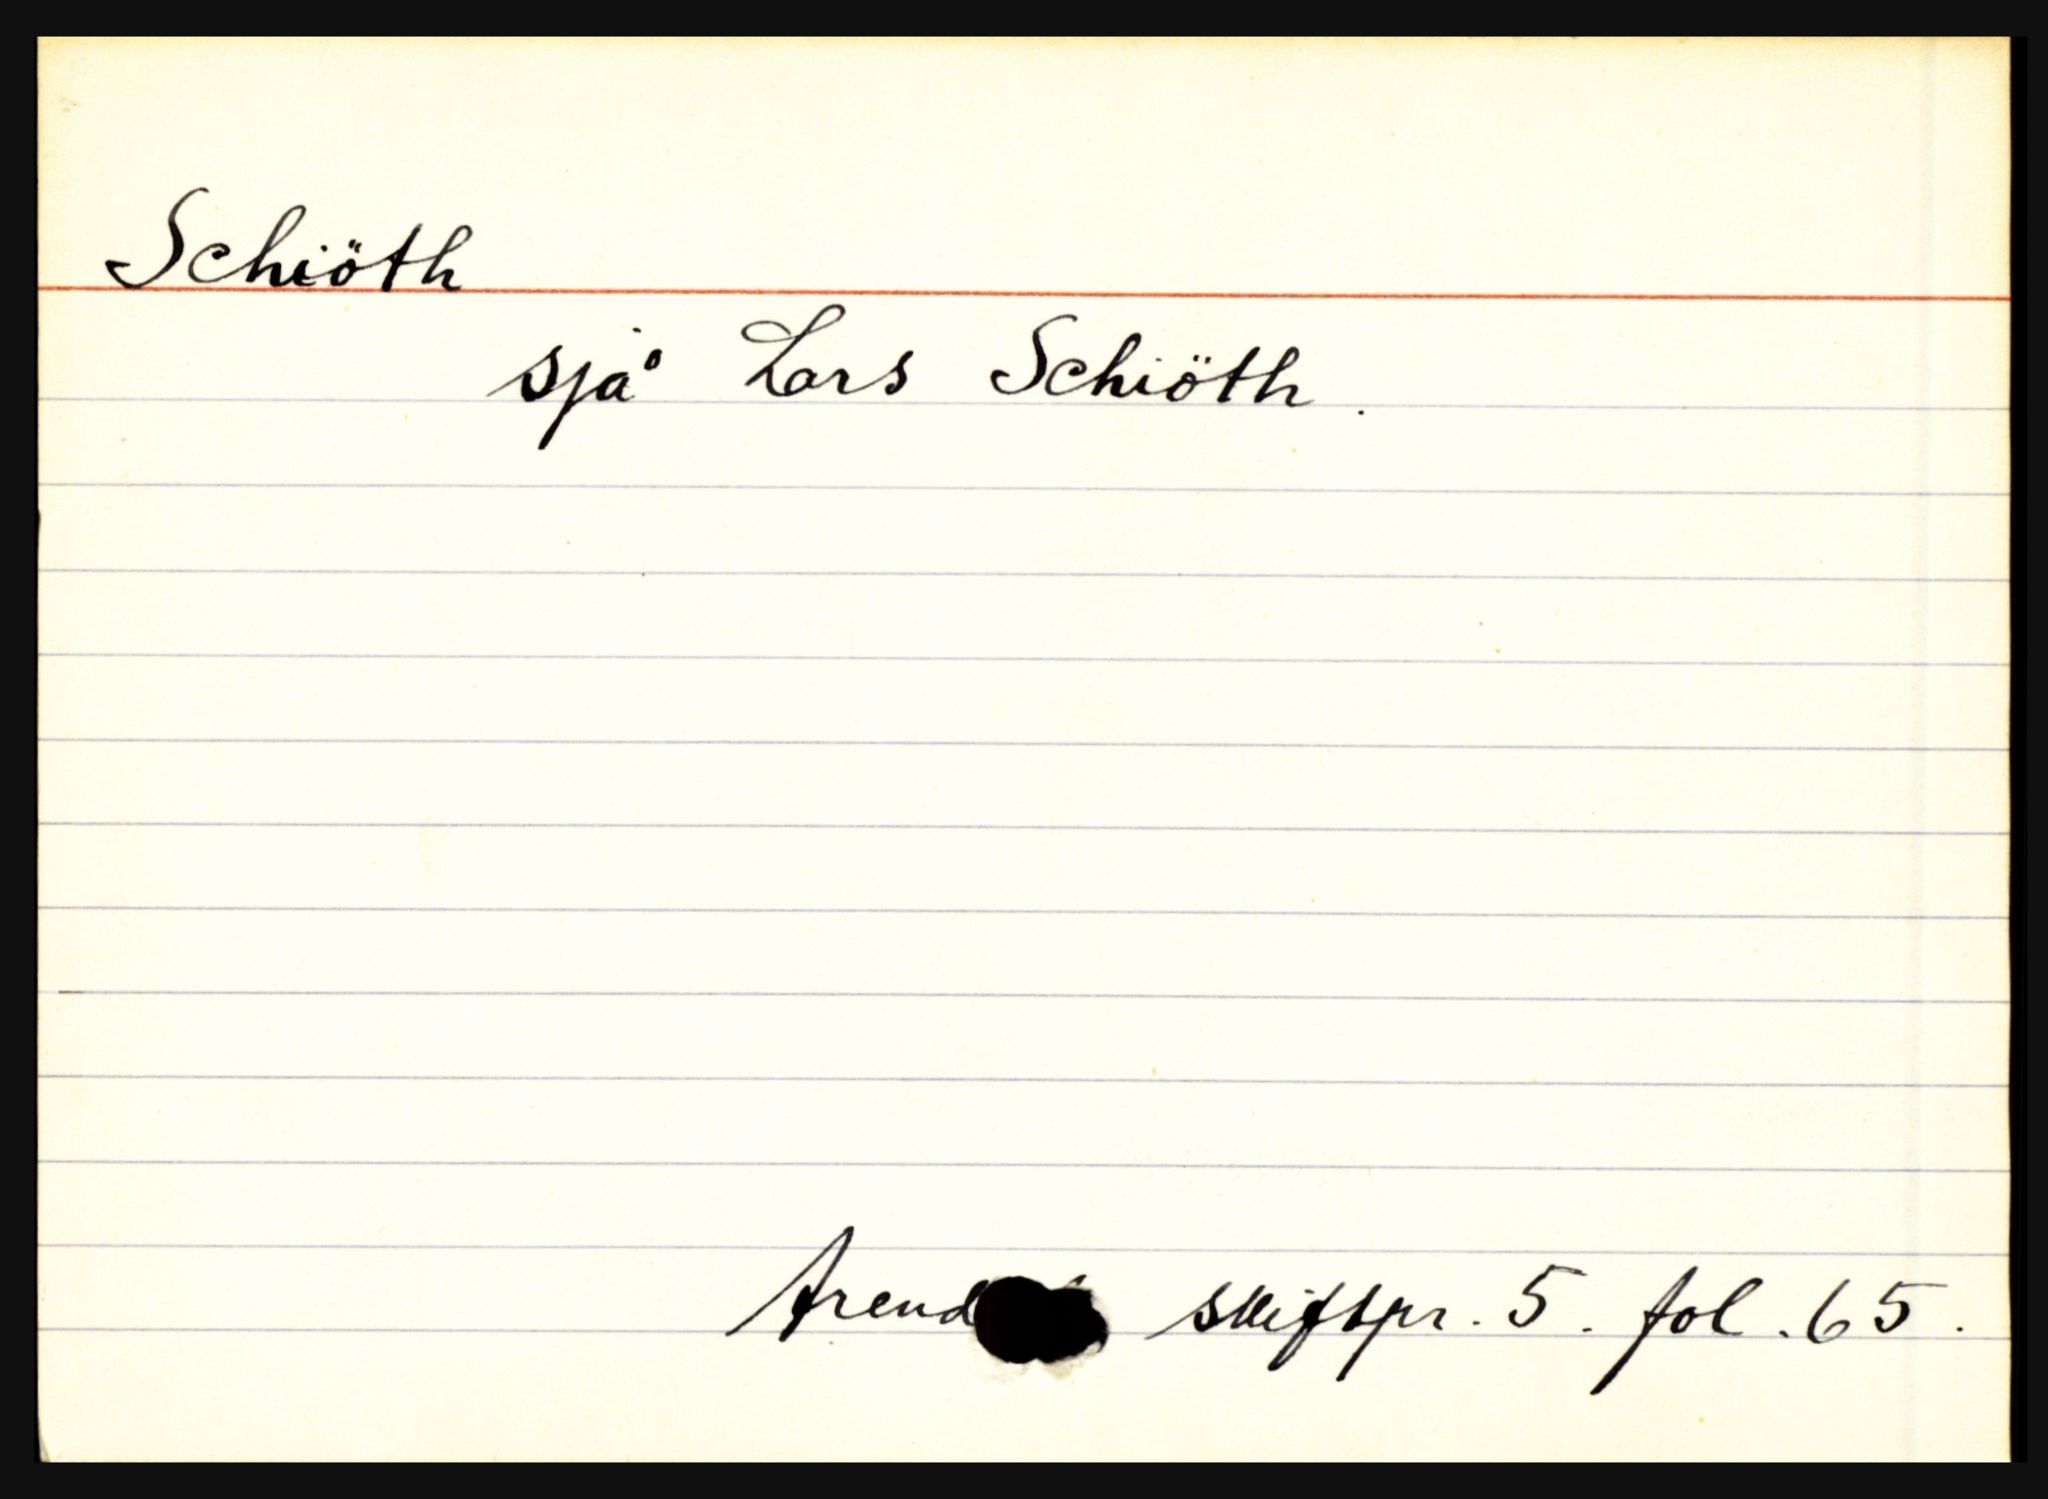 Schiöth
sjå Lars Schiöth.
Arend skiftpr. 5. fol. 65.